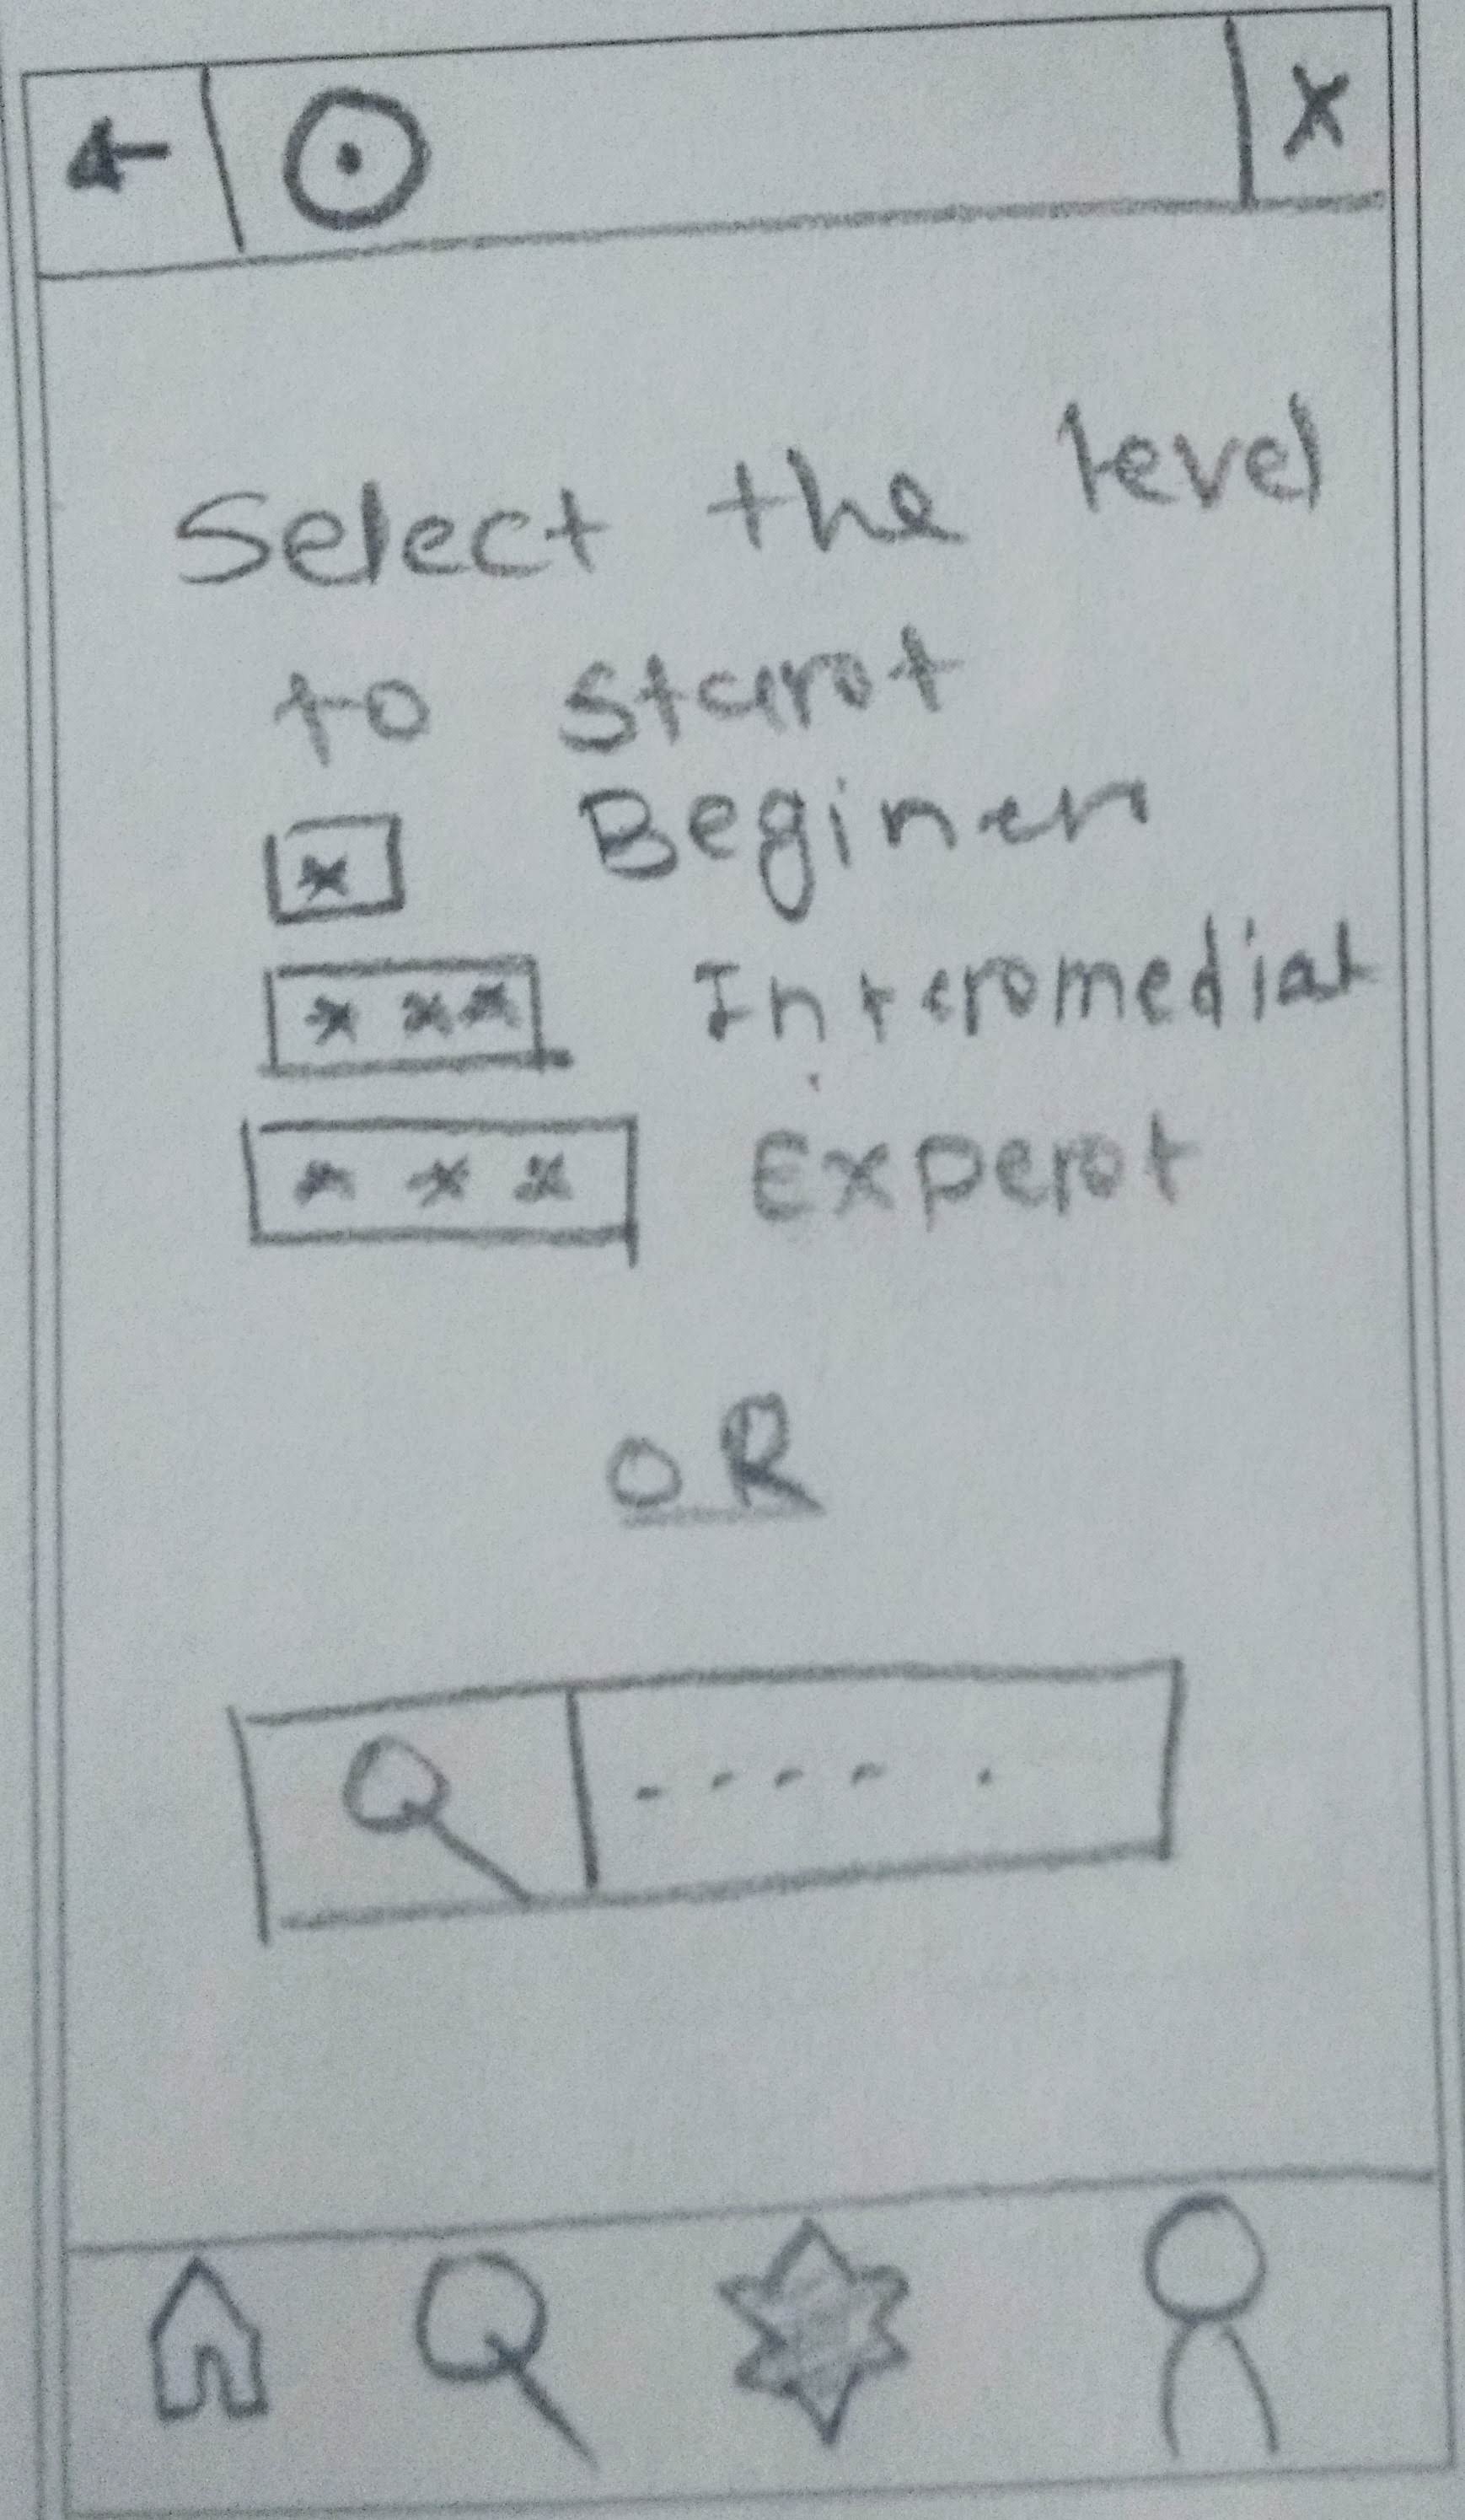 Select the level
to start
Beginer
Intermediat
Expert
OR